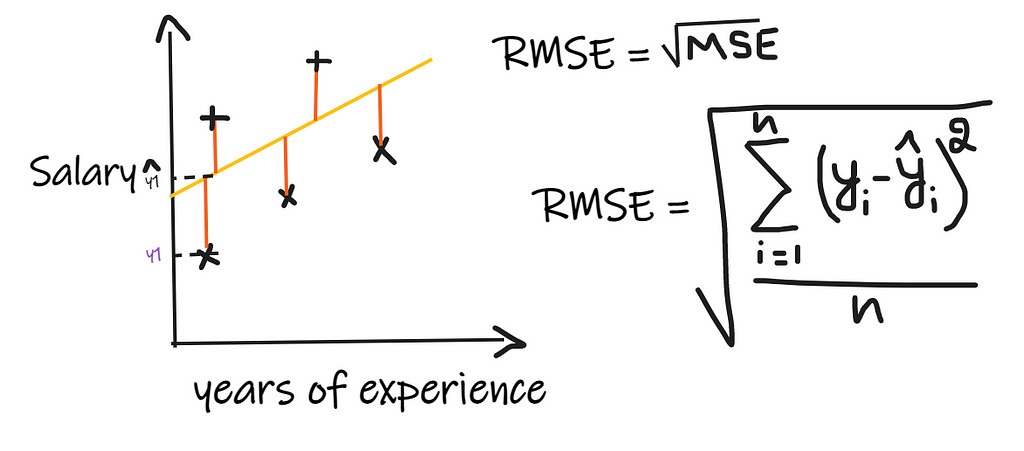 Salary
ŷ1
y1
years of experience
RMSE = √MSE
RMSE = √(∑ᵢ₌₁ⁿ (yᵢ-ŷᵢ)² / n)